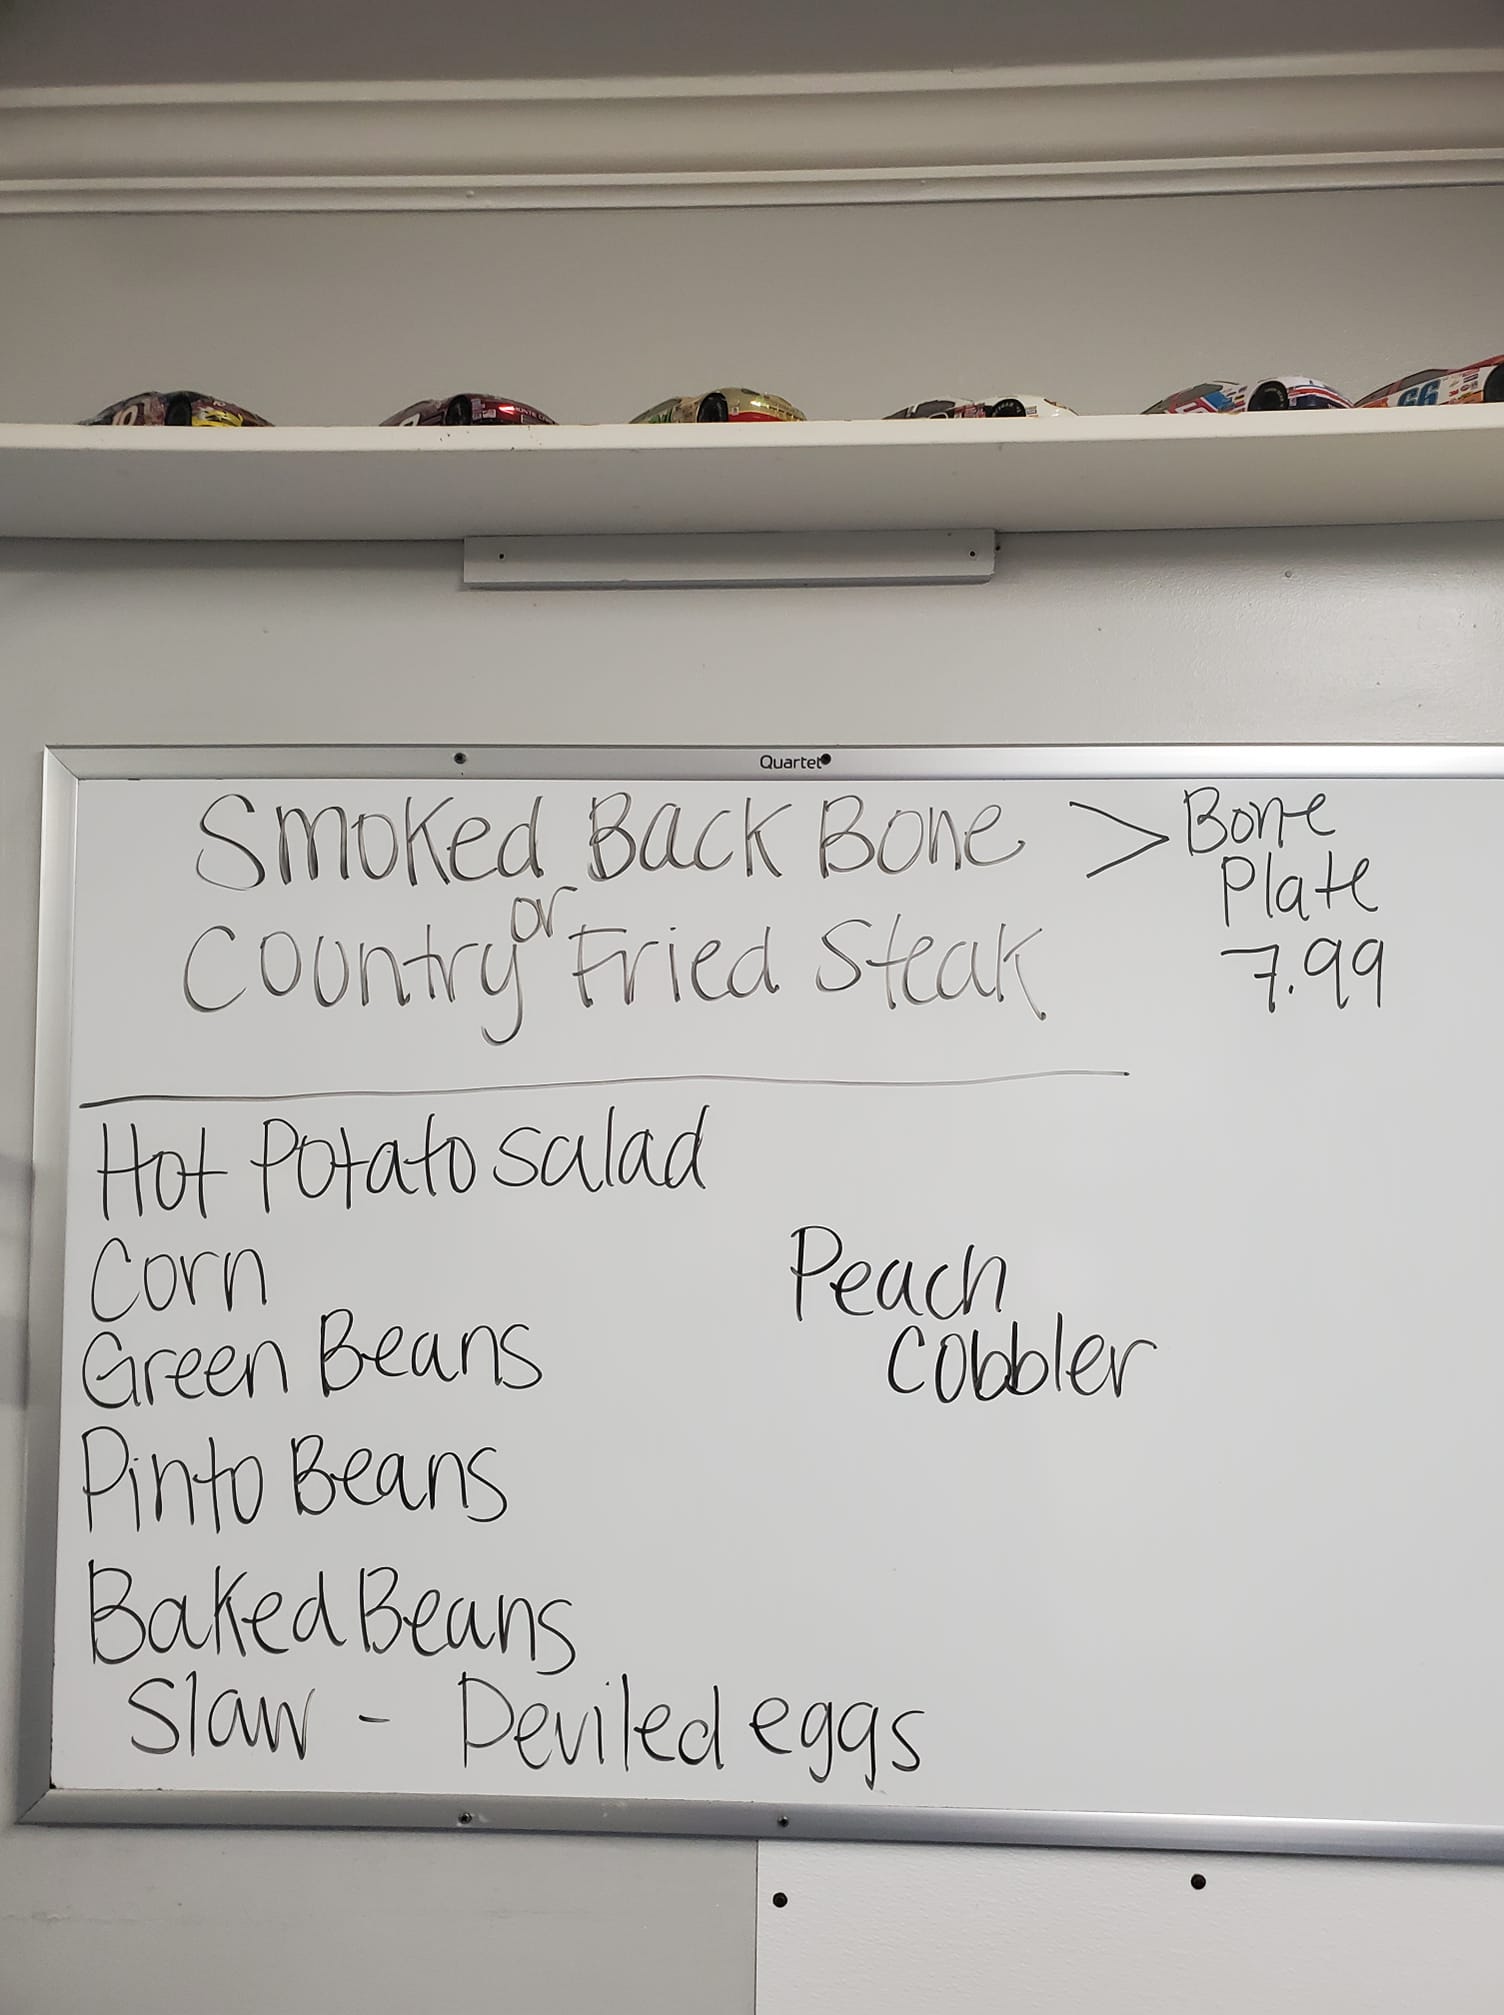 66
Quartet
Smoked Back Bone > Bone
Plate
7.99
or
Country Fried Steak
Hot Potato salad
Corn
Green Beans
Peach
Cobbler
Pinto Beans
Baked Beans
Slaw - Deviled eggs